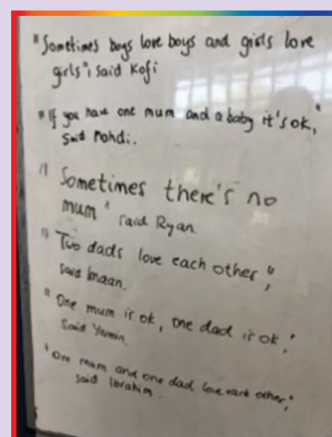 "Sometimes boys love boys and girls love
girls", said Kofi
"If you have one mum and a baby it's ok,"
said Mahdi.
"Sometimes there's no
mum" said Ryan.
"Two dads love each other,"
said Imaan.
"One mum is ok, one dad is ok,"
said Yasmin.
"One mum and one dad love each other,"
said Ibrahim.